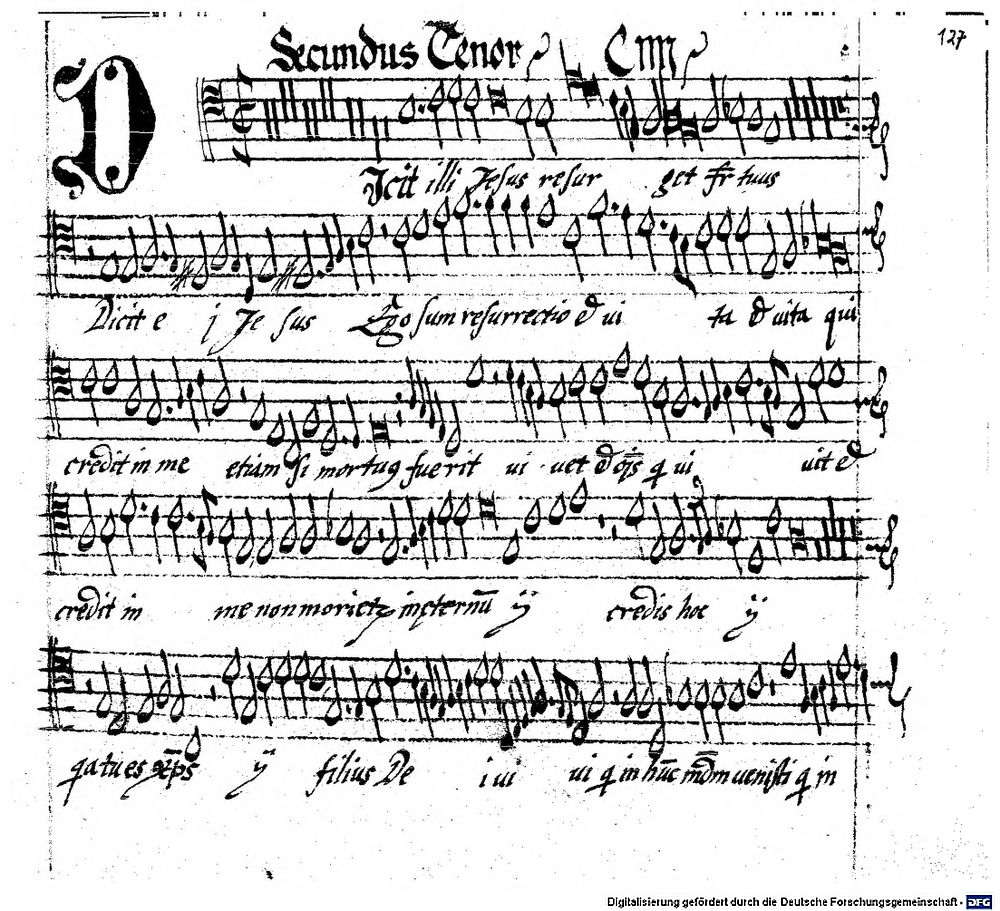 127
Secundus Tenor
DIcit illi Jesus resur get fr̄ tuus
Dicit e j Je sus Ego sum resurrectio & vi ta & vita qui
credit in me etiam si mortuꝰ fuerit vi vet & oīs q vi vit &
credit in me non morietꝛ in ęternū ij credis hoc ij
q̄a tu es xp̄s ij filius De i vi vi q̄ in hūc mūdm venisti q̄ in
Digitalisierung gefördert durch die Deutsche Forschungsgemeinschaft - DFG